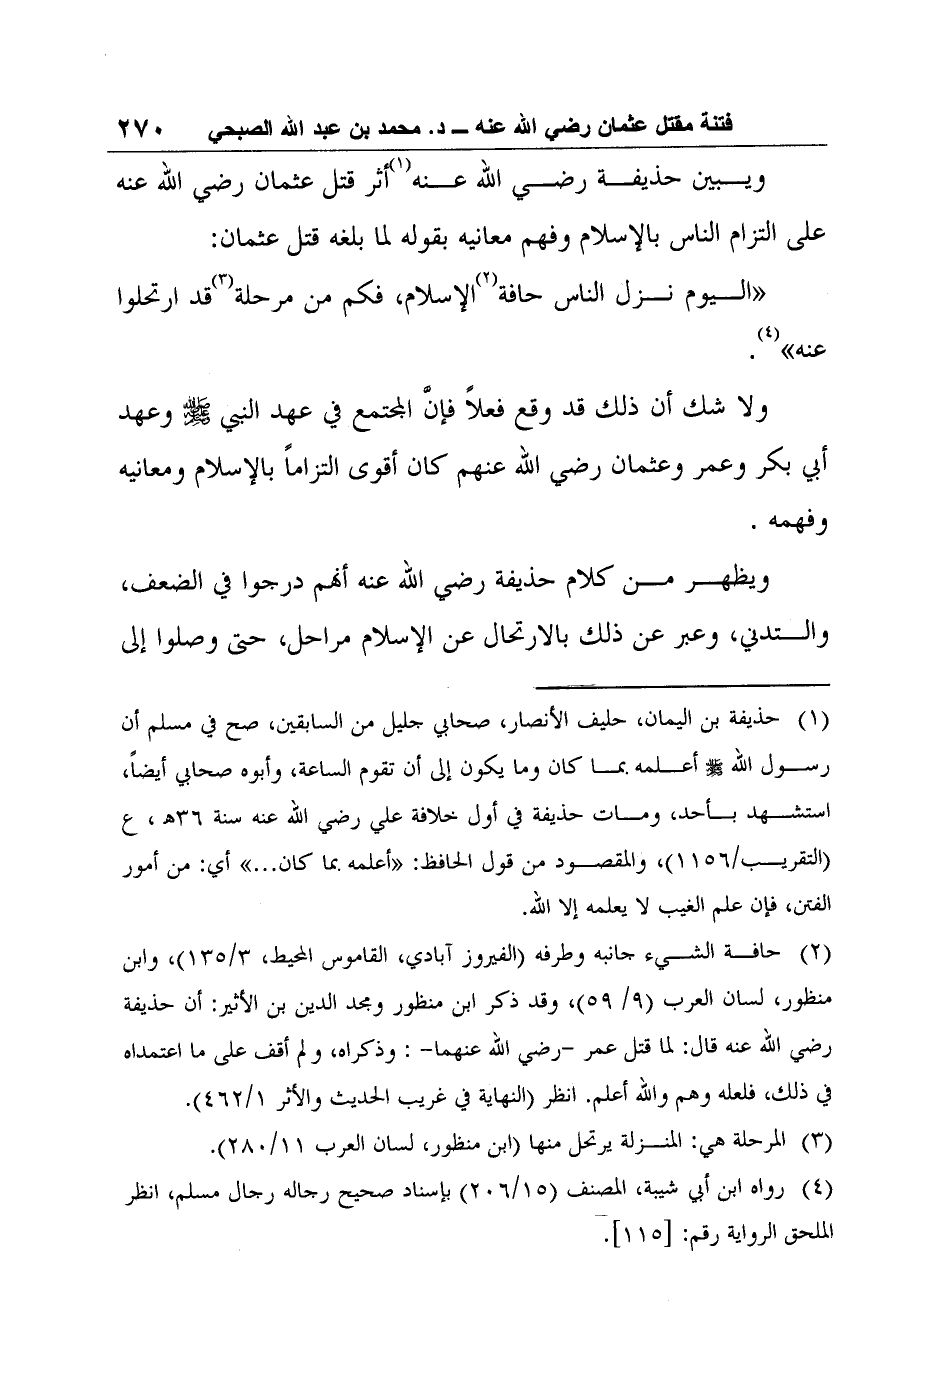 فتنة مقتل عثمان رضي الله عنه ــ د. محمد بن عبد الله الصبحي ٢٧٠
ويــبين حذيفــة رضــي الله عــنه(١) أثر قتل عثمان رضي الله عنه
على التزام الناس بالإسلام وفهم معانيه بقوله لما بلغه قتل عثمان:
«الــيوم نــزل الناس حافة(٢) الإسلام، فكم من مرحلة(٣) قد ارتحلوا
عنه»(٤).
ولا شك أن ذلك قد وقع فعلاً فإنَّ المجتمع في عهد النبي ﷺ وعهد
أبي بكر وعمر وعثمان رضي الله عنهم كان أقوى التزاماً بالإسلام ومعانيه
وفهمه .
ويظهــر مــن كلام حذيفة رضي الله عنه أنهم درجوا في الضعف،
والــتدني، وعبر عن ذلك بالارتحال عن الإسلام مراحل، حتى وصلوا إلى
(١) حذيفة بن اليمان، حليف الأنصار، صحابي جليل من السابقين، صح في مسلم أن
رســول الله ﷺ أعــلمه بمــا كان وما يكون إلى أن تقوم الساعة، وأبوه صحابي أيضاً،
استشــهد بــأحد، ومــات حذيفة في أول خلافة علي رضي الله عنه سنة ٣٦هـ ، ع
(التقريــب/١١٥٦)، والمقصــود من قول الحافظ: «أعلمه بما كان...» أي: من أمور
الفتن، فإن علم الغيب لا يعلمه إلا الله.
(٢) حافــة الشــيء جانبه وطرفه (الفيروز آبادي، القاموس المحيط، ١٣٥/٣)، وابن
منظور، لسان العرب (٩/ ٥٩)، وقد ذكر ابن منظور ومجد الدين بن الأثير: أن حذيفة
رضي الله عنه قال: لما قتل عمر -رضي الله عنهما- : وذكراه، ولم أقف على ما اعتمداه
في ذلك، فلعله وهم والله أعلم. انظر (النهاية في غريب الحديث والأثر ٤٦٢/١).
(٣) المرحلة هي: المنــزلة يرتحل منها (ابن منظور، لسان العرب ٢٨٠/١١).
(٤) رواه ابن أبي شيبة، المصنف (٢٠٦/١٥) بإسناد صحيح رجاله رجال مسلم، انظر
الملحق الرواية رقم: [١١٥].